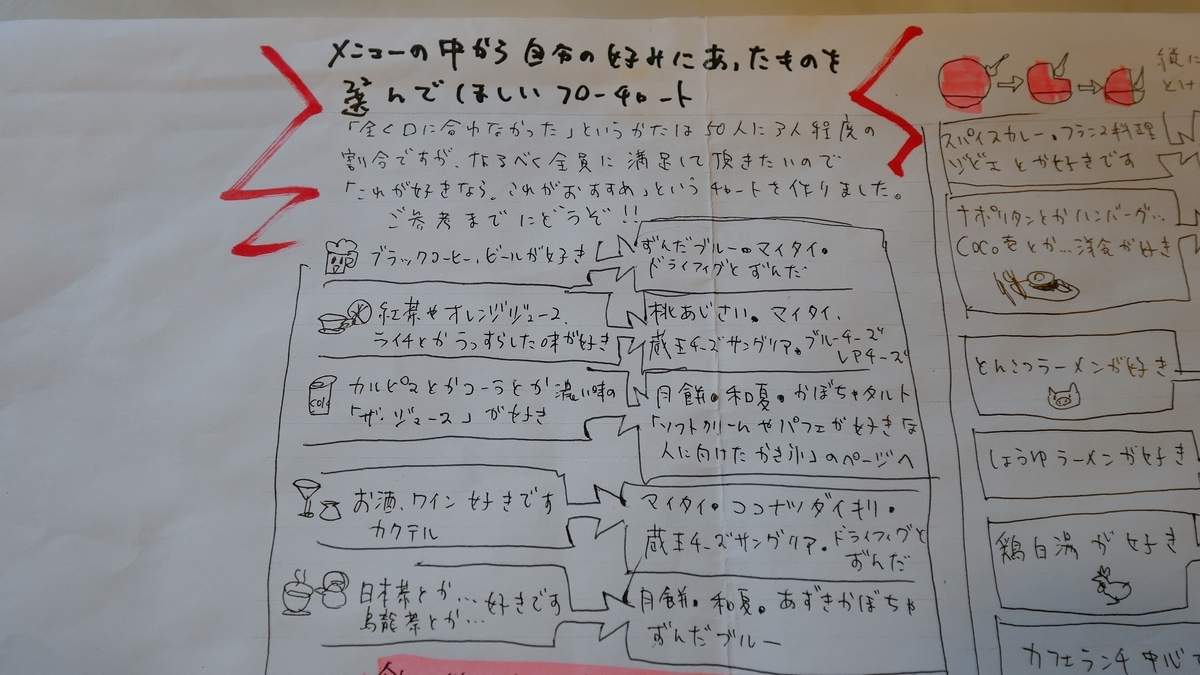 メニューの中から自分の好みにあったものを
選んでほしいフローチャート
「全く口に合わなかった」というかたは50人に3人程度の
割合ですが、なるべく全員に満足して頂きたいので
「これが好きなら、これがおすすめ」というチャートを作りました。
ご参考までにどうぞ!!
ブラックコーヒー、ビールが好き
ずんだブルー。マイタイ。
ドライフィグとずんだ
紅茶やオレンジジュース、
ライチとかうっすらした味が好き
桃あじさい。マイタイ、
蔵王チーズサングリア。ブルーチーズ
レアチーズ
カルピスとかコーラとか濃い味の
「ザ・ジュース」が好き
Cola
月餅。和夏。かぼちゃタルト
「ソフトクリームやパフェが好きな
人に向けたかき氷」のページへ
お酒、ワイン好きです
カクテル
マイタイ。ココナツダイキリ。
蔵王チーズサングリア。ドライフィグと
ずんだ
日本茶とか…好きです
烏龍茶とか…
月餅。和夏。あずきかぼちゃ
ずんだブルー
スパイスカレー。フランス料理
ジビエとか好きです
ナポリタンとかハンバーグ…
COCO壱とか…洋食が好き
とんこつラーメンが好き
しょうゆラーメンが好き
鶏白湯が好き
カフェランチ中心で